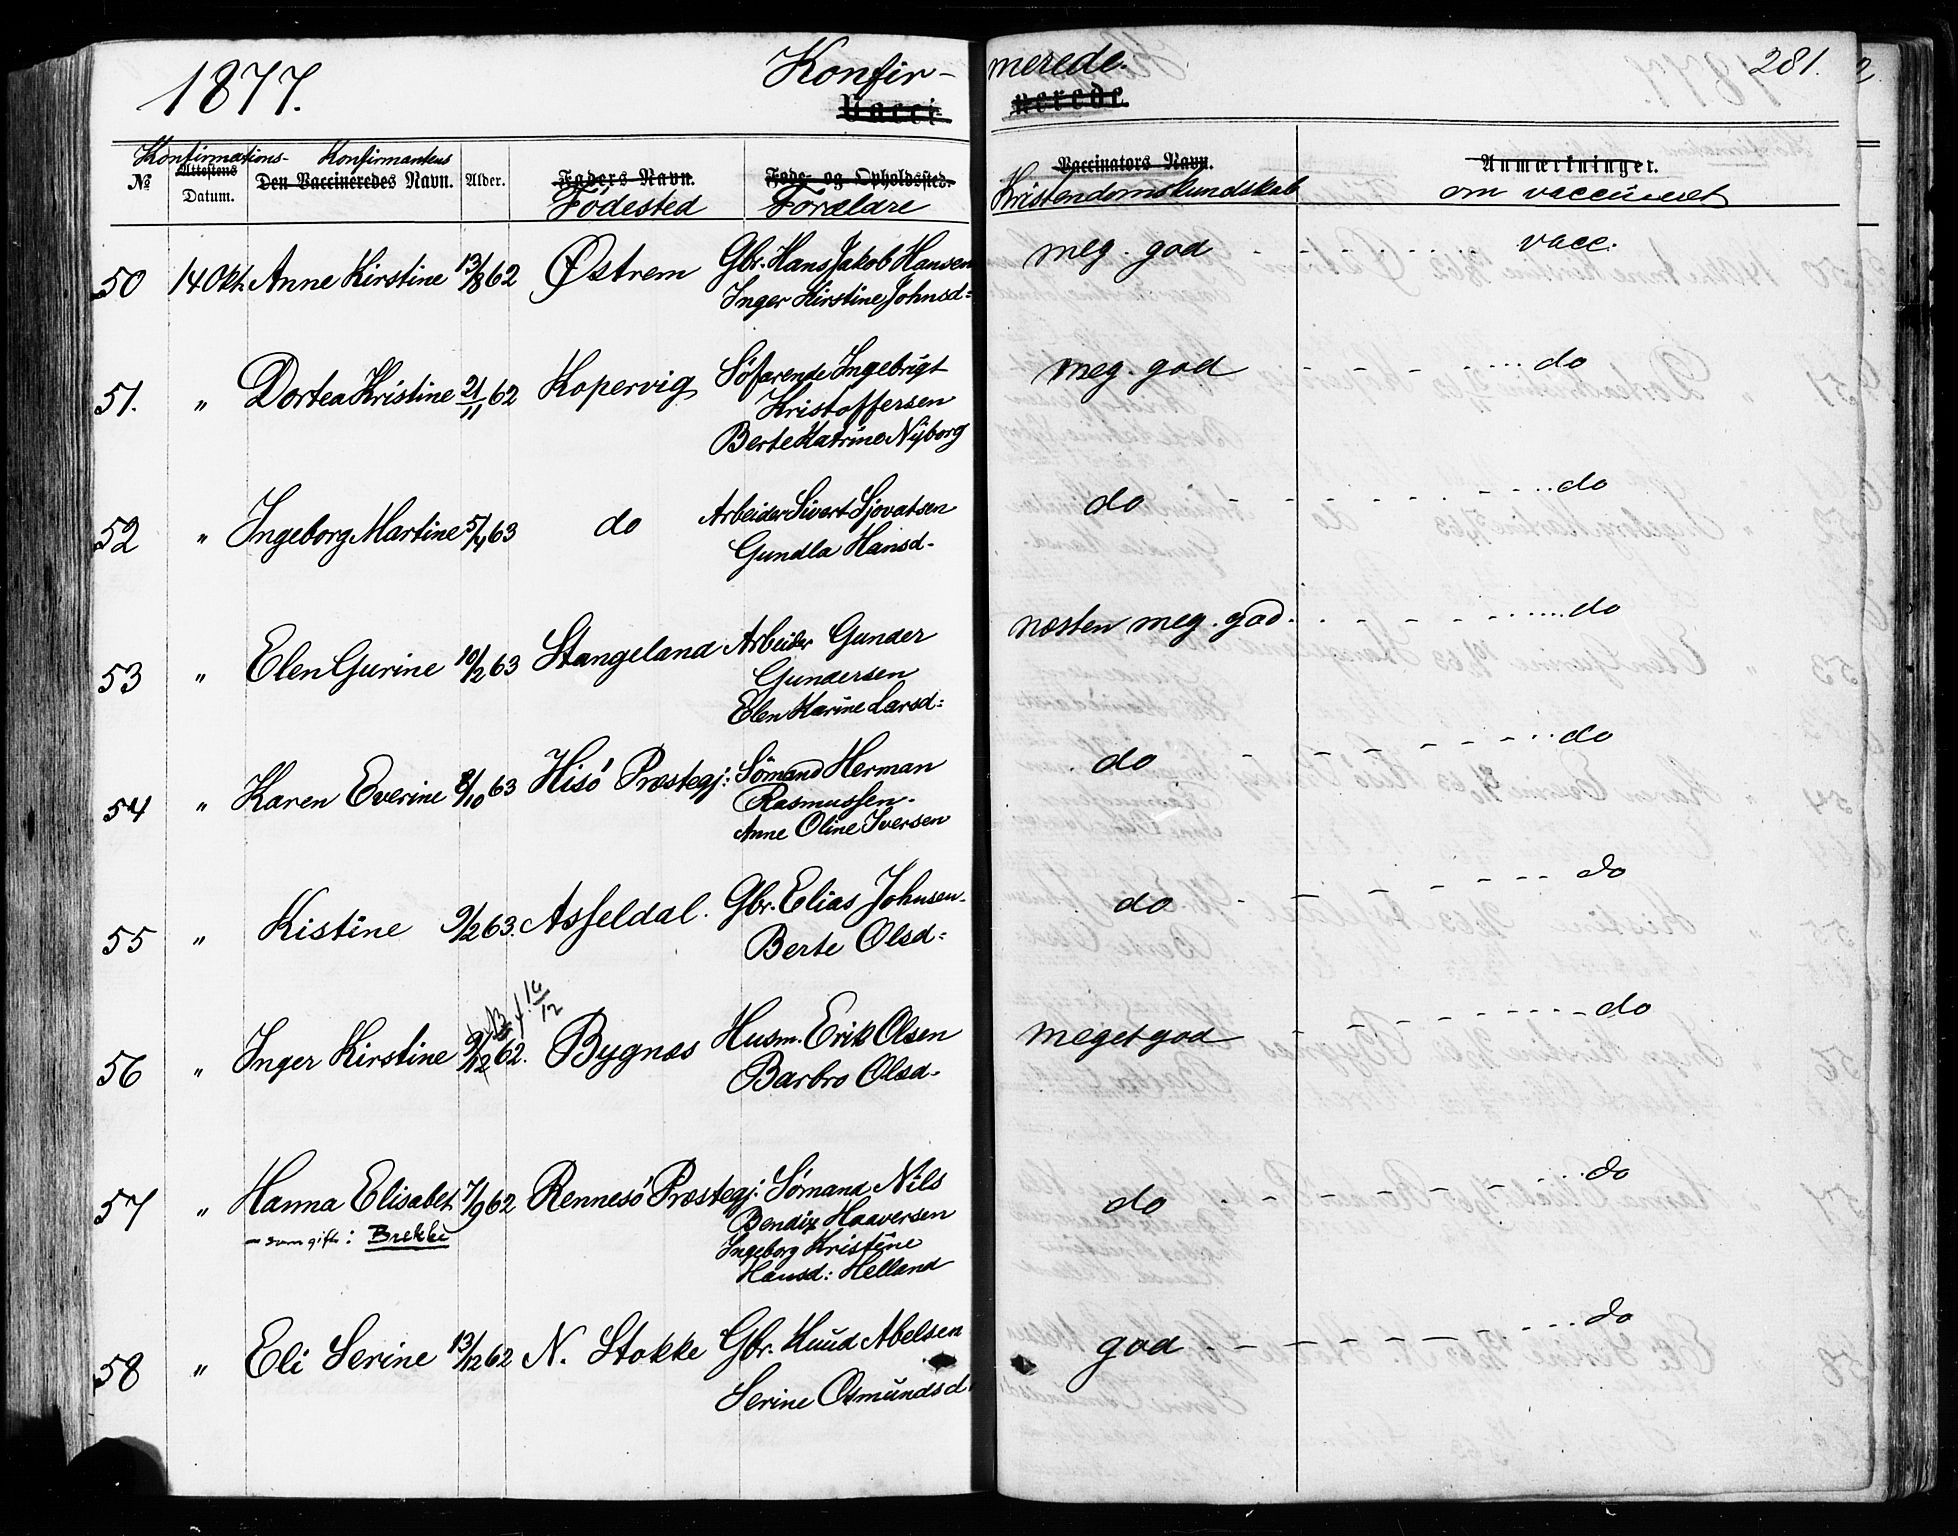 1877. Konfir- merede. 281.
Vacci- nerede.
Konfirmations- Konfirmantens
№ Attestens Datum. Den Vaccineredes Navn. Alder. Faders Navn. Føde- og Opholdssted. Vaccinators Navn. Anmærkninger.
Födested Forældre Kristendomskundskab om vaccineret
50 14 Okt. Anne Kirstine 13/8 62 Østrem Gbr. Hans Jakob Hansen meg. god vacc.
Inger Kirstine Johnsd:
51. " Dortea Kristine 21/11 62 Kopervig Söfarende Ingebrigt meg. god do
Kristoffersen
Berte Katrine Nyborg
52 " Ingeborg Martine 5/4 63 do Arbeider Sivert Sjovatsen do do
Gundla Hansd.
53 " Elen Gurine 10/2 63 Stangeland Arbeider Gunder næsten meg. god. do
Gundersen
Elen Karine Larsd:
54 " Karen Everine 8/10 63 Hisö Præstegj: Sömand Herman do do
Rasmussen.
Anne Oline Iversen
55 " Kistine 9/2 63. Asfeldal. Gbr. Elias Johnsen. do do
Berte Olsd:
56 " Inger Kirstine 62. Bygnæs Husm. Erik Olsen meget god do
16/12
Barbro Olsd.
57 " Hanna Elisabet 7/9 62 Rennesö Præstegj: Sömand Nils do do
– som gift: Brekke Bendix Haaversen
Ingeborg Kristine
Hansd: Helland
58 " Eli Serine 13/12 62 N. Stokke Gbr. Knud Abelsen god do
Serine Osmundsd.